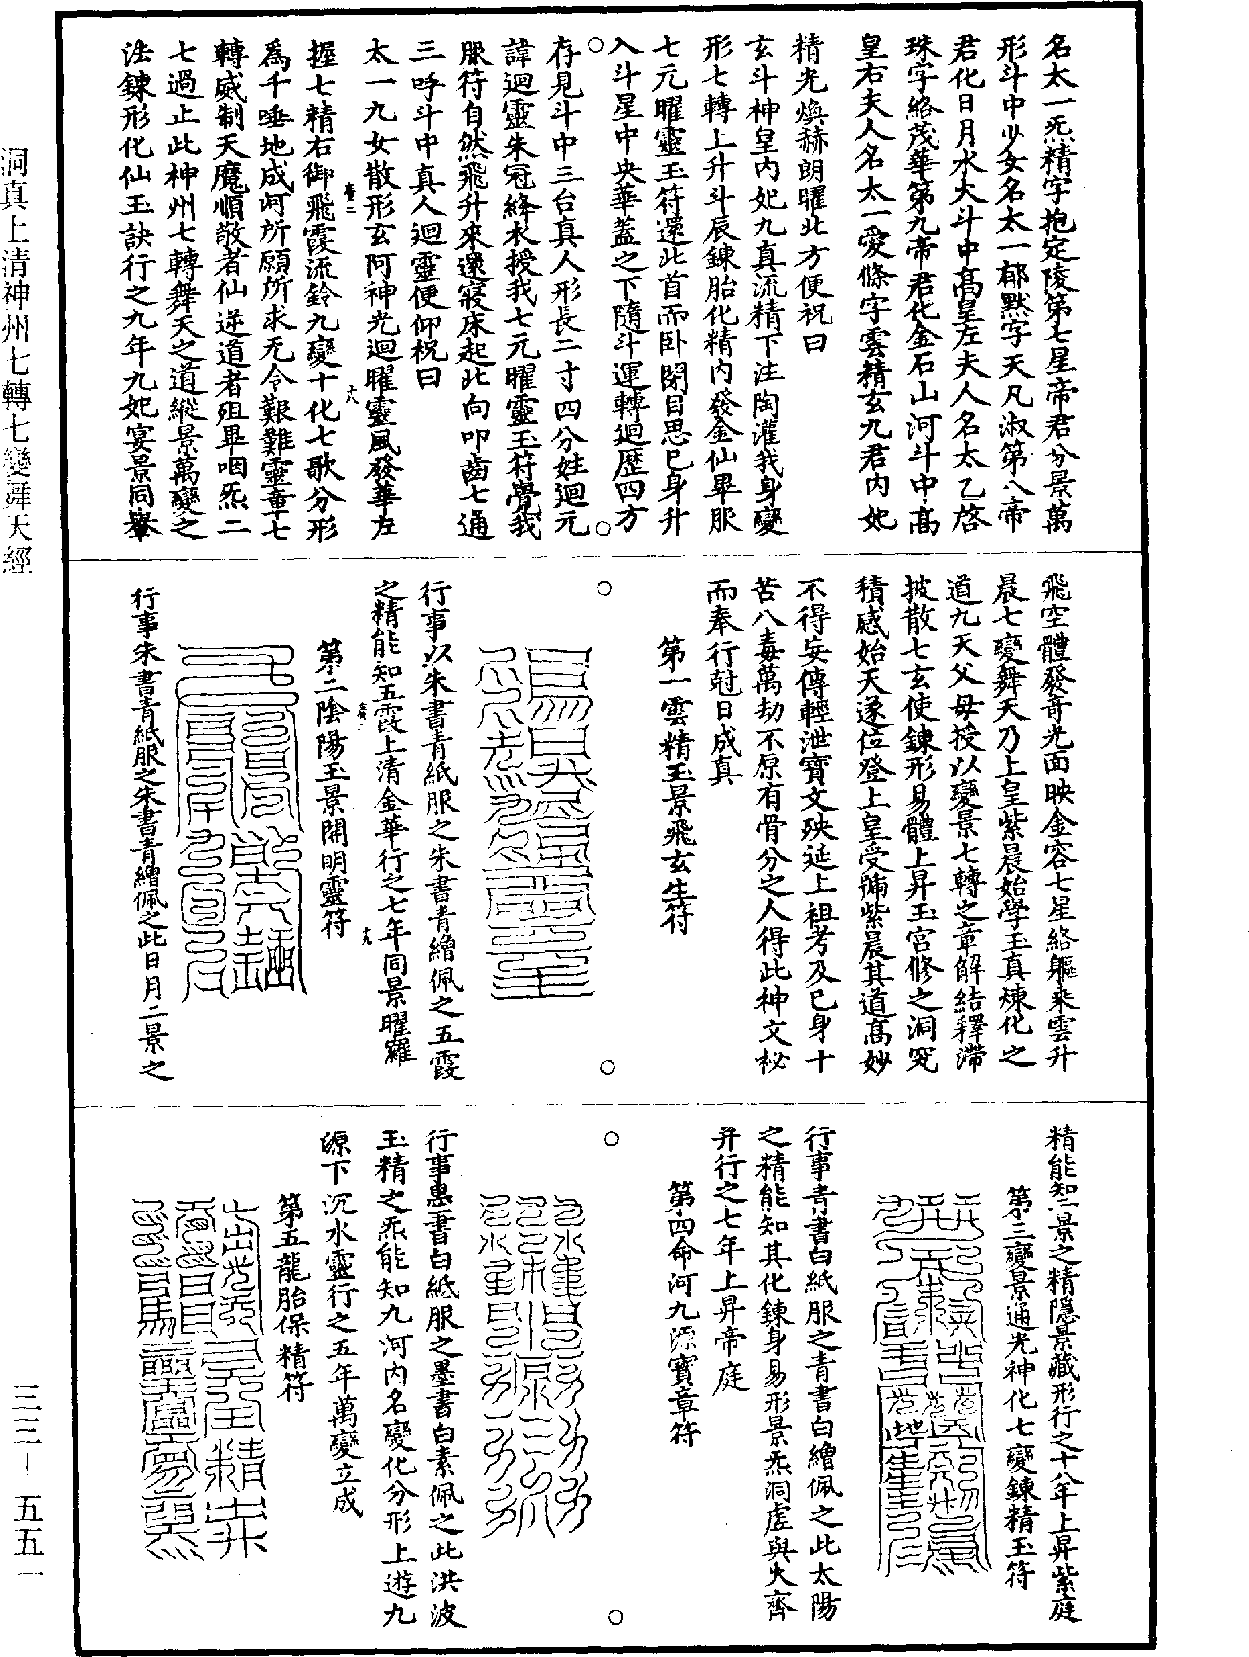 名太一炁精字抱定陵第七星帝君分景萬
形斗中少女名太一郁默字天凡淑第八帝
君化日月水火斗中高皇左夫人名太乙啓
珠字絡茂華第九帝君化金石山河斗中高
皇右夫人名太一愛條字雲精玄九君内妃
精光煥赫朗曜北方便祝曰
玄斗神皇内妃九真流精下注陶灌我身變
形七轉上升斗辰鍊胎化精内發金仙畢服
七元曜靈玉符還北首而卧閉目思已身升
入斗星中央華蓋之下隨斗運轉迴歷四方
存見斗中三台真人形長二寸四分姓迴元
諱迴靈朱冠絳衣授我七元曜靈玉符覺我
服符自然飛升來還寢床起北向叩齒七通
三呼斗中真人迴靈便仰祝曰
太一九女散形玄阿神光迴曜靈風發華左
握七精右御飛霞流鈴九變十化七歌分形
為千唾地成呵所願所求无令艱難靈童七
轉威制天魔順敬者仙逆道者殂畢咽炁二
七過止此神州七轉舞天之道縱景萬變之
法鍊形化仙玉訣行之九年九妃宴景同轝
飛空體發奇光面映金容七星絡軀乘雲升
晨七變舞天乃上皇紫晨始學玉真煉化之
道九天父母授以變景七轉之章解結釋滯
披散七玄使鍊形易體上昇玉宮修之洞究
積感始天遂位登上皇受號紫晨其道高妙
不得妄傳輕泄寶文殃延上祖考及已身十
苦八毒萬劫不原有骨分之人得此神文祕
而奉行尅日成真
第一雲精玉景飛玄生符
行事以朱書青紙服之朱書青繒佩之五霞
之精能知五霞上清金華行之七年同景曜羅
第二陰陽玉景開明靈符
行事朱書青紙服之朱書青繒佩之此日月二景之
精能知二景之精隱景藏形行之十八年上昇紫庭
第三變景通光神化七變鍊精玉符
行事青書白紙服之青書白繒佩之此太陽
之精能知其化鍊身易形景炁洞虛與火齊
升行之七年上昇帝庭
第四命河九源寶章符
行事墨書白紙服之墨書白素佩之此洪波
玉精之炁能知九河内名變化分形上遊九
源下沉水靈行之五年萬變立成
第五龍胎保精符
洞真上清神州七轉七變舞天經
三三—五五一